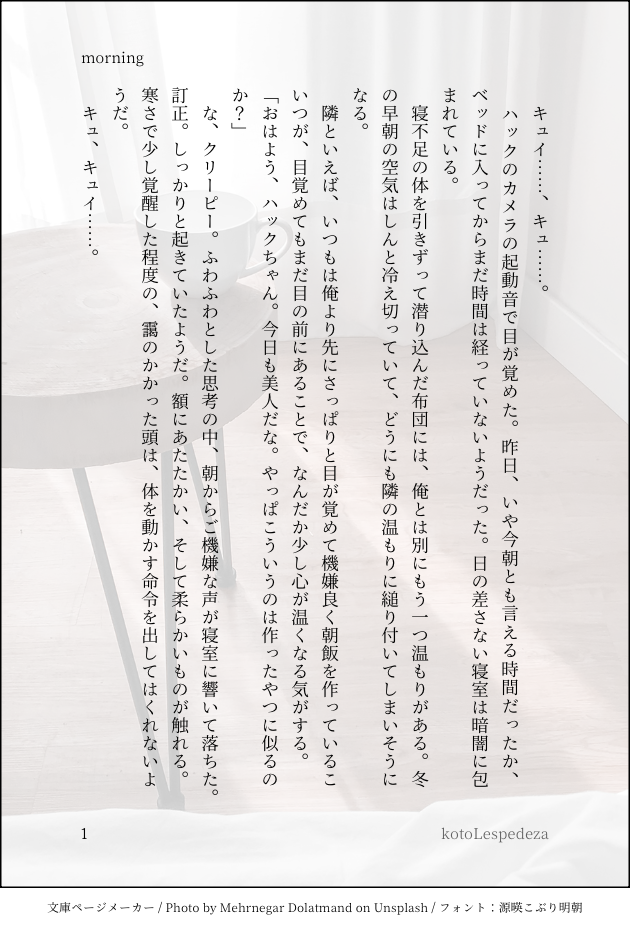 morning
キュイ……、キュ……。
ハックのカメラの起動音で目が覚めた。昨日、いや今朝とも言える時間だったか、
ベッドに入ってからまだ時間は経っていないようだった。日の差さない寝室は暗闇に包
まれている。
寝不足の体を引きずって潜り込んだ布団には、俺とは別にもう一つ温もりがある。冬
の早朝の空気はしんと冷え切っていて、どうにも隣の温もりに縋り付いてしまいそうに
なる。
隣といえば、いつもは俺より先にさっぱりと目が覚めて機嫌良く朝飯を作っているこ
いつが、目覚めてもまだ目の前にあることで、なんだか少し心が温くなる気がする。
「おはよう、ハックちゃん。今日も美人だな。やっぱこういうのは作ったやつに似るの
か？」
な、クリーピー。ふわふわとした思考の中、朝からご機嫌な声が寝室に響いて落ちた。
訂正。しっかりと起きていたようだ。額にあたたかい、そして柔らかいものが触れる。
寒さで少し覚醒した程度の、靄のかかった頭は、体を動かす命令を出してはくれないよ
うだ。
キュ、キュイ……。
1
kotoLespedeza
文庫ページメーカー / Photo by Mehrnegar Dolatmand on Unsplash / フォント：源暎こぶり明朝